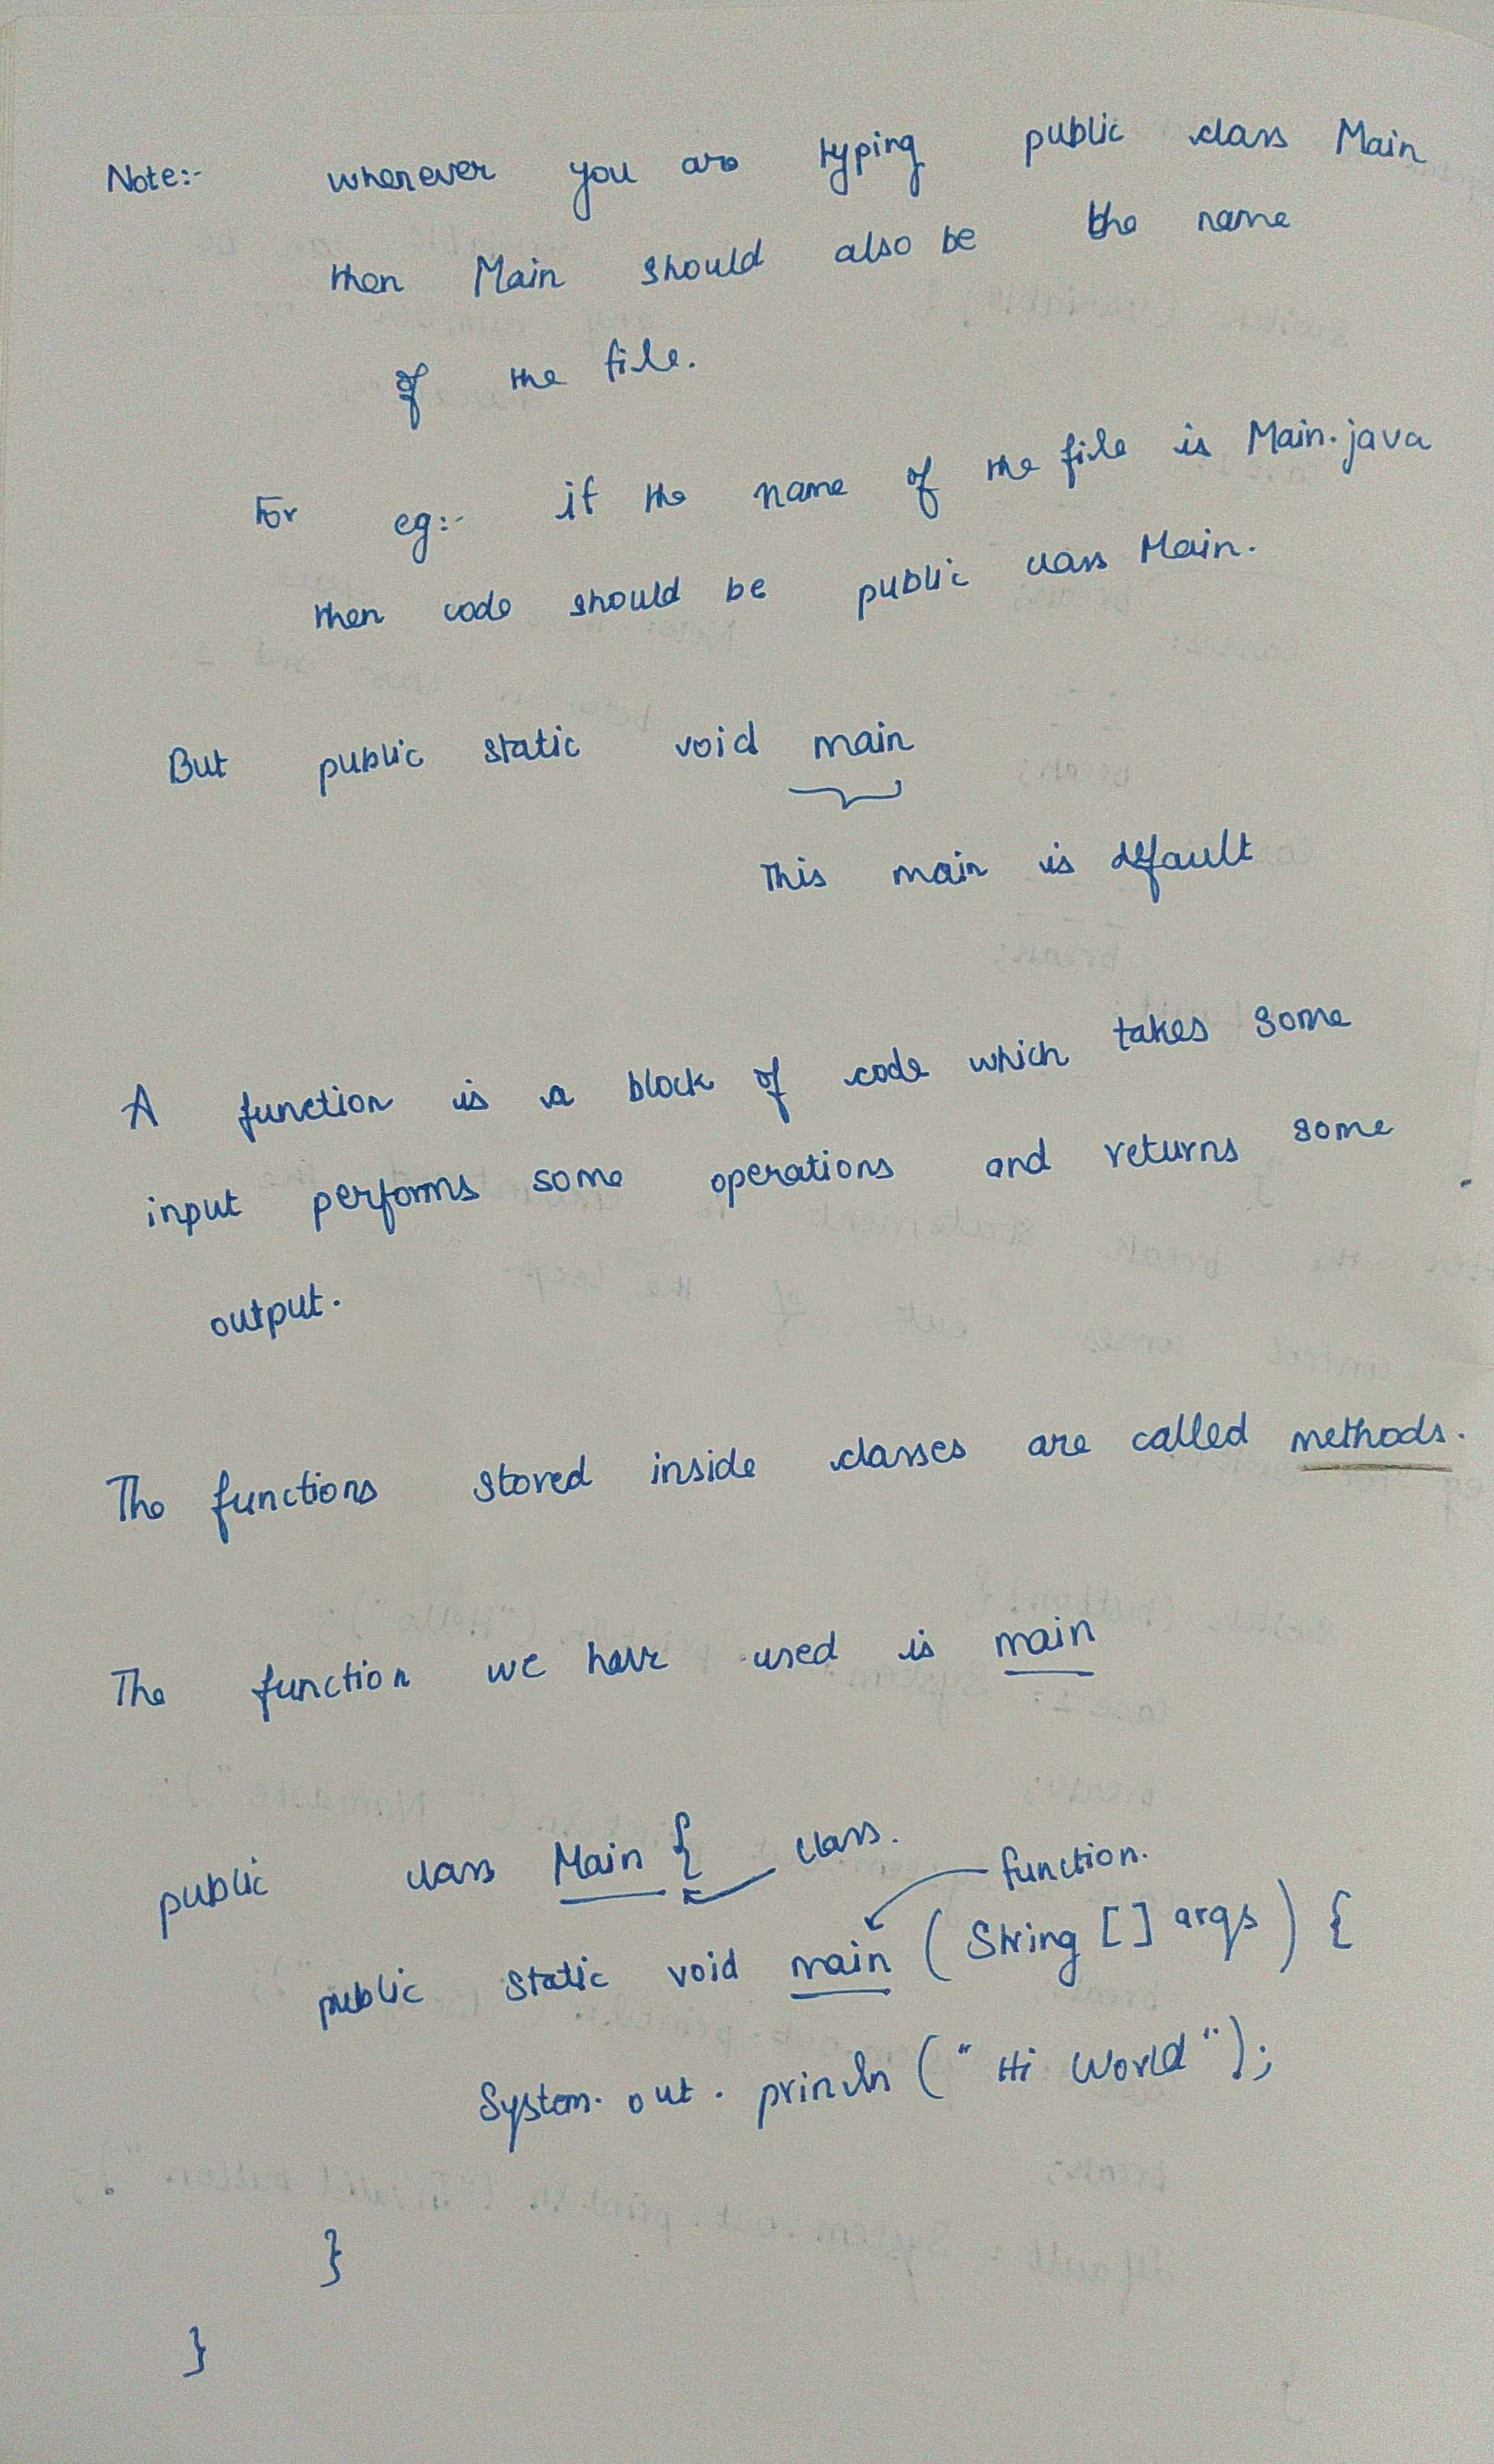 Note:- whenever you are typing public class Main
then Main should also be the name
of the file.
For eg:- if the name of the file is Main.java
then code should be public class Main.
But public static void main
This main is default
A function is a block of code which takes some
input performs some operations and returns some
output.
The functions stored inside classes are called methods.
The function we have used is main
public class Main { class.
function.
public static void main (String [] args) {
System.out.println ("Hi World");
}
}